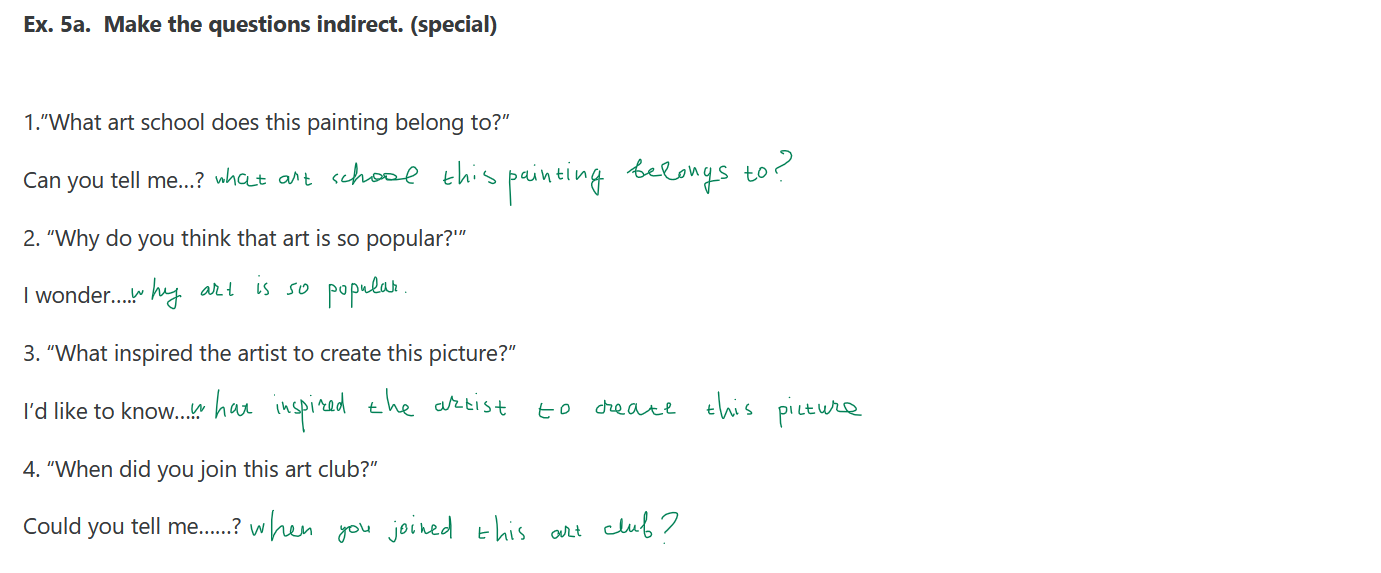 Ex. 5a. Make the questions indirect. (special)
1.”What art school does this painting belong to?”
Can you tell me...? what art school this painting belongs to?
2. “Why do you think that art is so popular?'”
I wonder..... why art is so popular.
3. “What inspired the artist to create this picture?”
I’d like to know..... what inspired the artist to create this picture
4. “When did you join this art club?”
Could you tell me......? when you joined this art club?